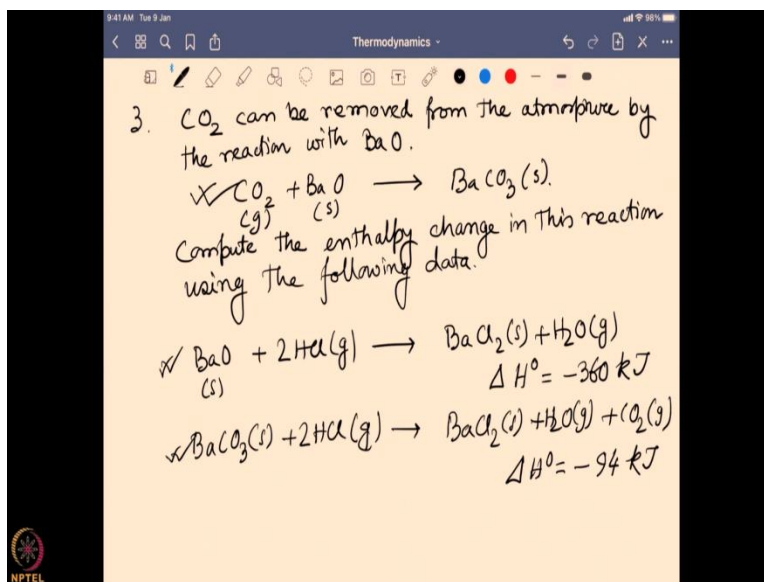 9:41 AM Tue 9 Jan
98%
Thermodynamics
3. CO2 can be removed from the atmosphere by
the reaction with BaO.
CO2 + BaO → BaCO3 (s).
(g) (s)
Compute the enthalpy change in this reaction
using the following data.
BaO + 2HCl(g) → BaCl2(s) + H2O(g)
(s)
ΔH° = -360 kJ
BaCO3(s) + 2HCl(g) → BaCl2(s) + H2O(g) + CO2(g)
ΔH° = -94 kJ
NPTEL